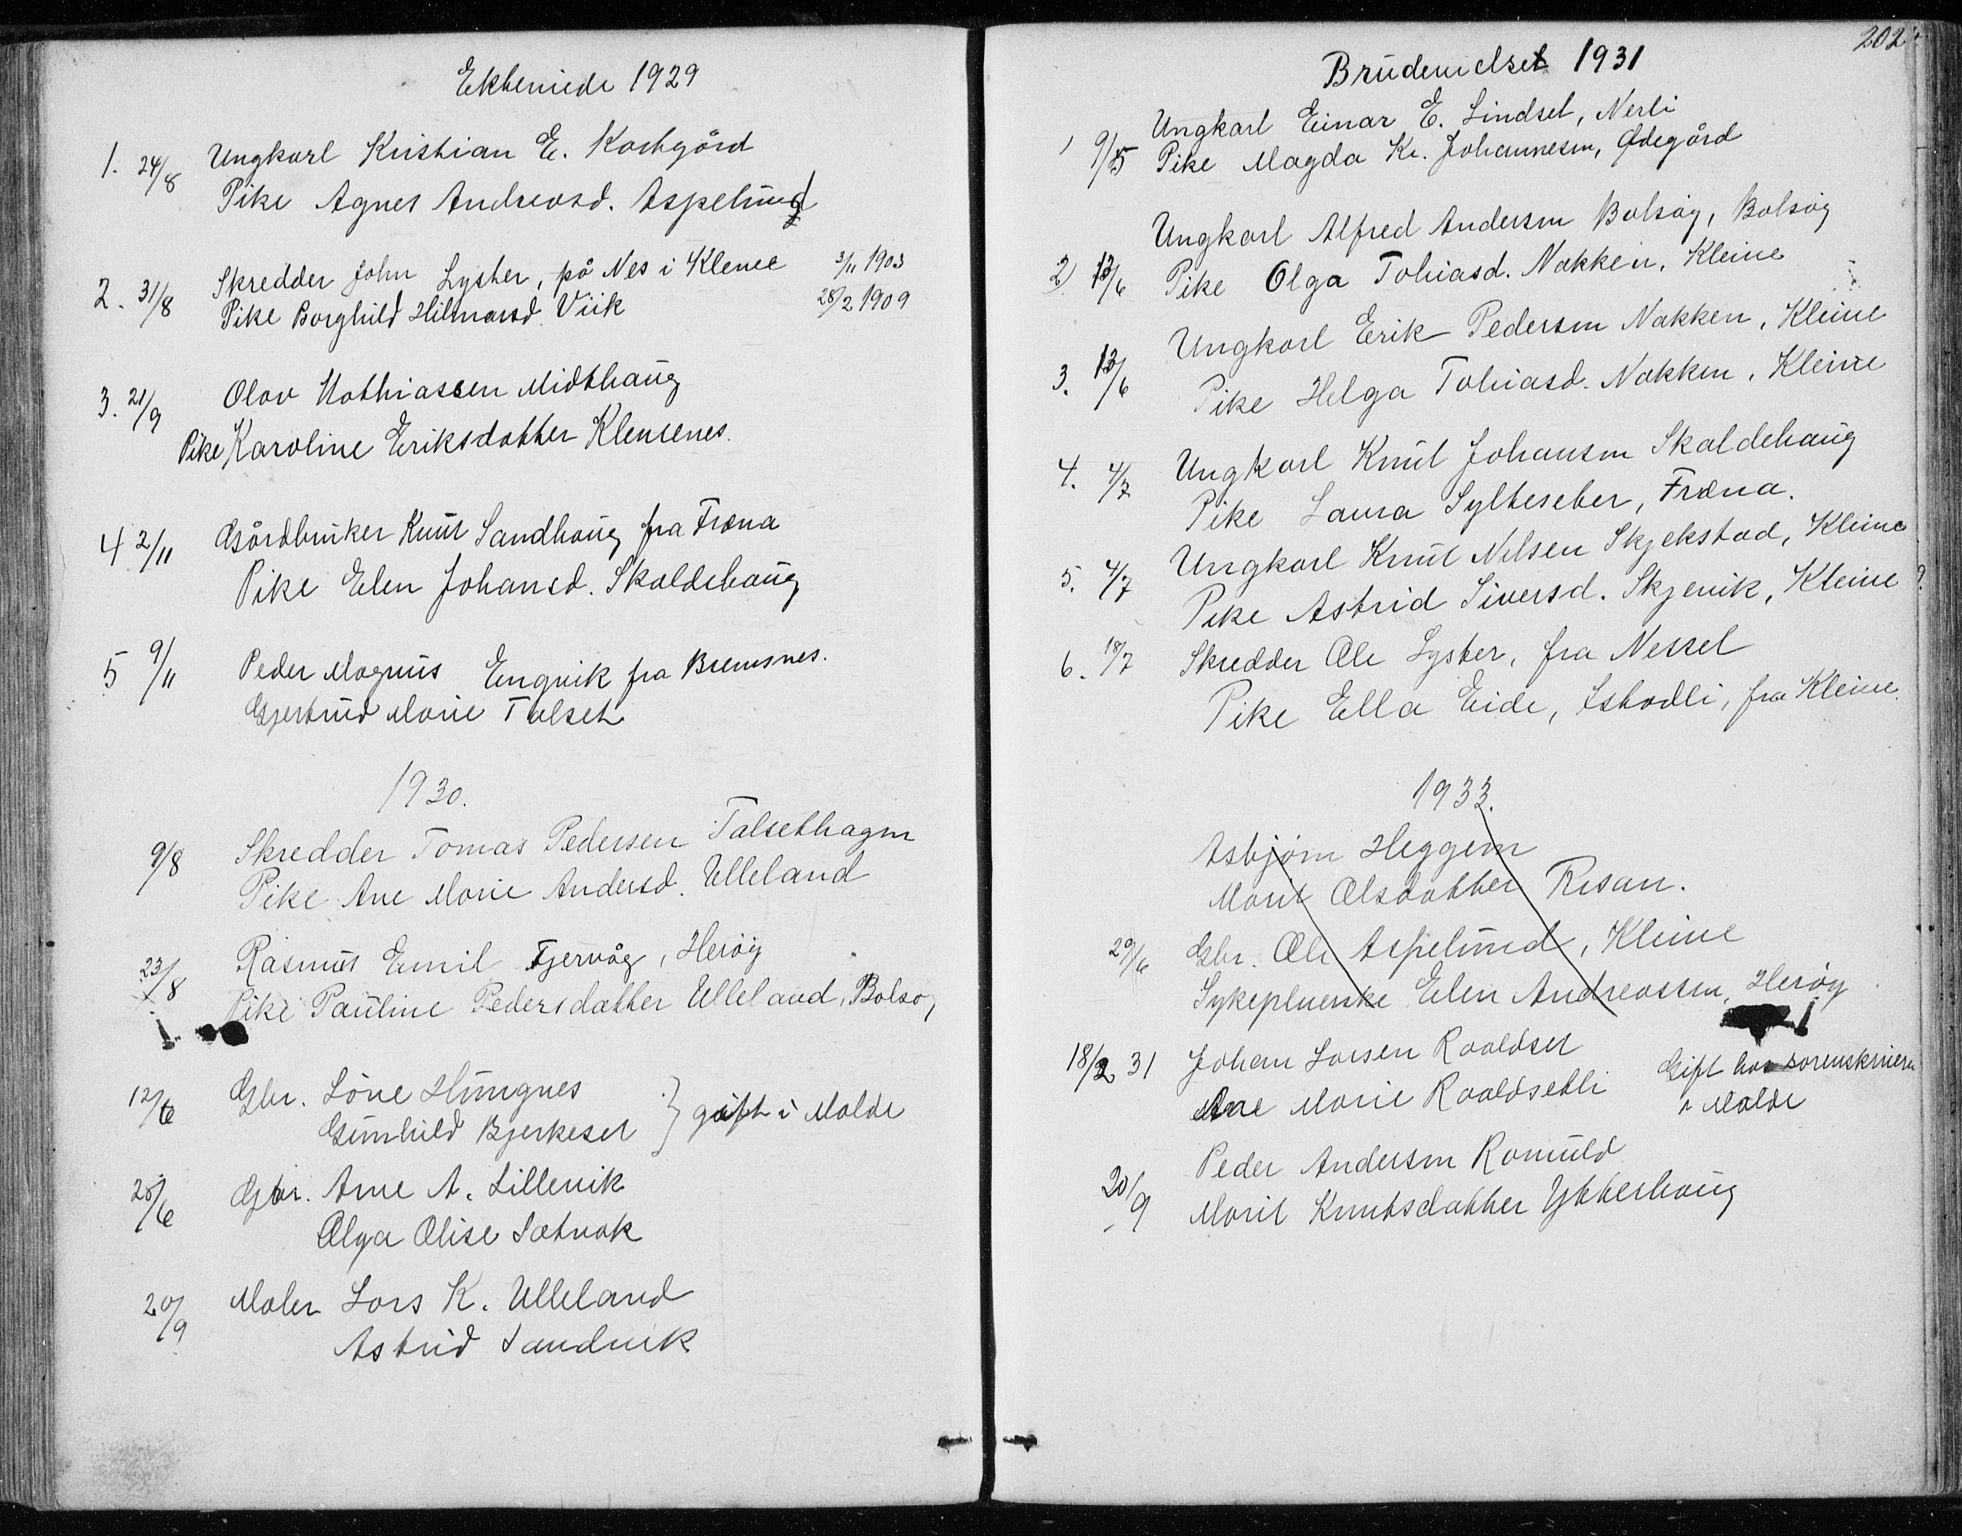 Ektevidde 1929
1. 24/8 Ungkarl Kristian E. Korsgård
Pike Agnes Andreasd. Aspelund
2. 31/8 Skredder John Lyster, på Nes i Kleive 3/11 1903
Pike Borghild Hilmarsd. Viik 28/2 1909
3. 21/9 Olav Mathiassen Midthaug
Pike Karoline Eriksdatter Kleivenes.
4 2/11 Gårdbruker Knut Sandhaug fra Fræna
Pike Elen Johansd. Skaldehaug
5 9/11 Peder Magnus Engvik fra Bremsnes.
Gjertrud Marie Talset
1930.
9/8 Skredder Tomas Pedersen Talsethagen
Pike Ane Marie Andersd. Ulleland
23/8 Rasmus Emil Fjervåg, Herøy
Pike Pauline Pedersdatter Ulleland, Bolsøy
12/6 Gbr. Lône Hungnes
Gunhild Bjerkeset } gift i Molde
28/6 Gbr. Arne A. Lillevik
Olga Olise Sætnak
20/9 Maler Lars K. Ulleland
Astrid Sandvik
202
Brudevielser 1931
1 9/5 Ungkarl Einar E. Lindset, Nerli
Pike Magda Kr. Johannesen, Ødegård
2) 13/6 Ungkarl Alfred Andersen Bolsøy, Bolsøy
Pike Olga Tobiasd. Nakken, Kleive
3. 13/6 Ungkarl Erik Pedersen Nakken, Kleive
Pike Helga Tobiasd. Nakken, Kleive
4. 4/7 Ungkarl Knut Johansen Skaldehaug
Pike Laura Sylteseter, Fræna.
5. 4/7 Ungkarl Knut Nilsen Skjekstad, Kleive
Pike Astrid Siversd. Skjevik, Kleive ?
6. 18/7 Skredder Ole Lyster, fra Nesset
Pike Ella Eide, Istadli, fra Kleive.
1933.
Asbjørn Heggem
Marit Olsdatter Risan.
29/6 Gbr. Ole Aspelund, Kleive
Sykepleierske Elen Andreassen, Herøy
18/2 31 Johan Larsen Roaldset Gift hos sorenskriveren
Ane Marie Roaldsetli i Molde
20/9 Peder Andersen Romuld
Marit Knutsdatter Ytterhaug